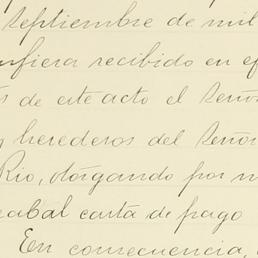 septiembre de mil
nfiera recibido en ef
de este acto el Seño
y herederos del Seño
Rio, otorgando por m
cabal carta de pago
En consecuencia,